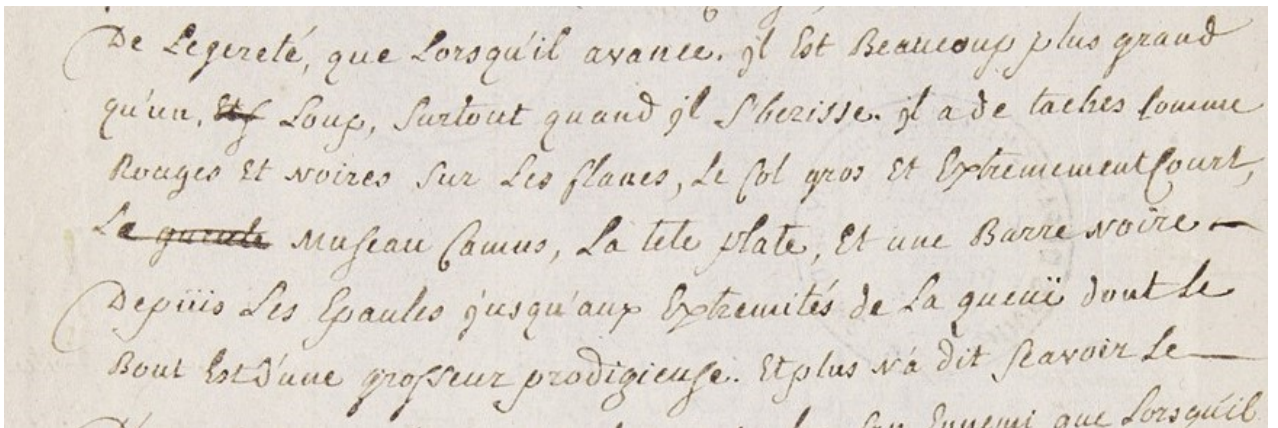 De Legereté, que Lorsqu'il avance. jl Est Beaucoup plus grand
qu'un, Loup, surtout quand jl s'herisse. jl a de taches comme
Rouges Et noires sur Les flancs, Le Col gros Et Extremement Court,
Le gueule Museau Camus, La tete plate, Et une Barre noire
Depüis Les Epaules jusqu'aux Extremités de La queuë dont Le
Bout Est D'une grosseur prodigieuse. Et plus n'a dit scavoir Le
son Ennemi que Lorsqu'il